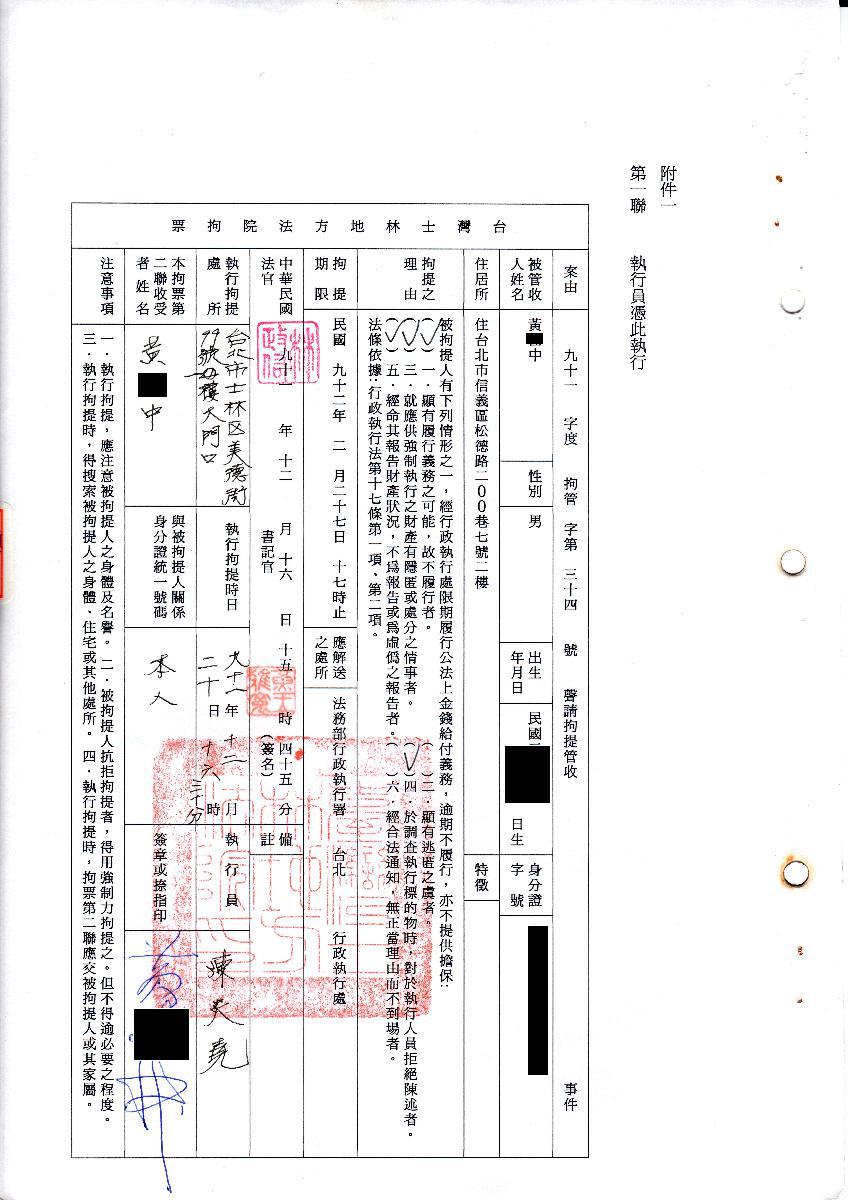 附件一
第一聯　執行員憑此執行
台灣士林地方法院拘票
案由　九十一　字度　拘管　字第　三十四　號　聲請拘提管收　事件
被管收人姓名　黃　中　性別　男　出生年月日　民國　日生　身分證字號
住居所　住台北市信義區松德路二00巷七號二樓　特徵
拘提之理由
被拘提人有下列情形之一，經行政執行處限期履行公法上金錢給付義務，逾期不履行，亦不提供擔保：
(✓)一．顯有履行義務之可能，故不履行者。　( )二．顯有逃匿之虞者。
(✓)三．就應供強制執行之財產有隱匿或處分之情事者。　(✓)四．於調查執行標的物時，對於執行人員拒絕陳述者。
(✓)五．經命其報告財產狀況，不為報告或為虛偽之報告者。　( )六．經合法通知，無正當理由而不到場者。
法條依據：行政執行法第十七條第一項、第二項。
拘提期限　民國　九十二年　二　月二十七日　十七時止　應解送之處所　法務部行政執行署　台北　行政執行處
中華民國　九十一　年　十二　月　十六　日　十五　時　四十五　分　備註
法官　書記官　（簽名）
執行拘提處所　台北市士林区美德街99號四樓大門口　執行拘提時日　九十一年十二月二十日十六時三十分　執行員
本拘票第二聯收受者姓名　黃　中　與被拘提人關係身分證統一號碼　本人　簽章或捺指印
注意事項
一．執行拘提，應注意被拘提人之身體及名譽。二．被拘提人抗拒拘提者，得用強制力拘提之。但不得逾必要之程度。
三．執行拘提時，得搜索被拘提人之身體、住宅或其他處所。四．執行拘提時，拘票第二聯應交被拘提人或其家屬。